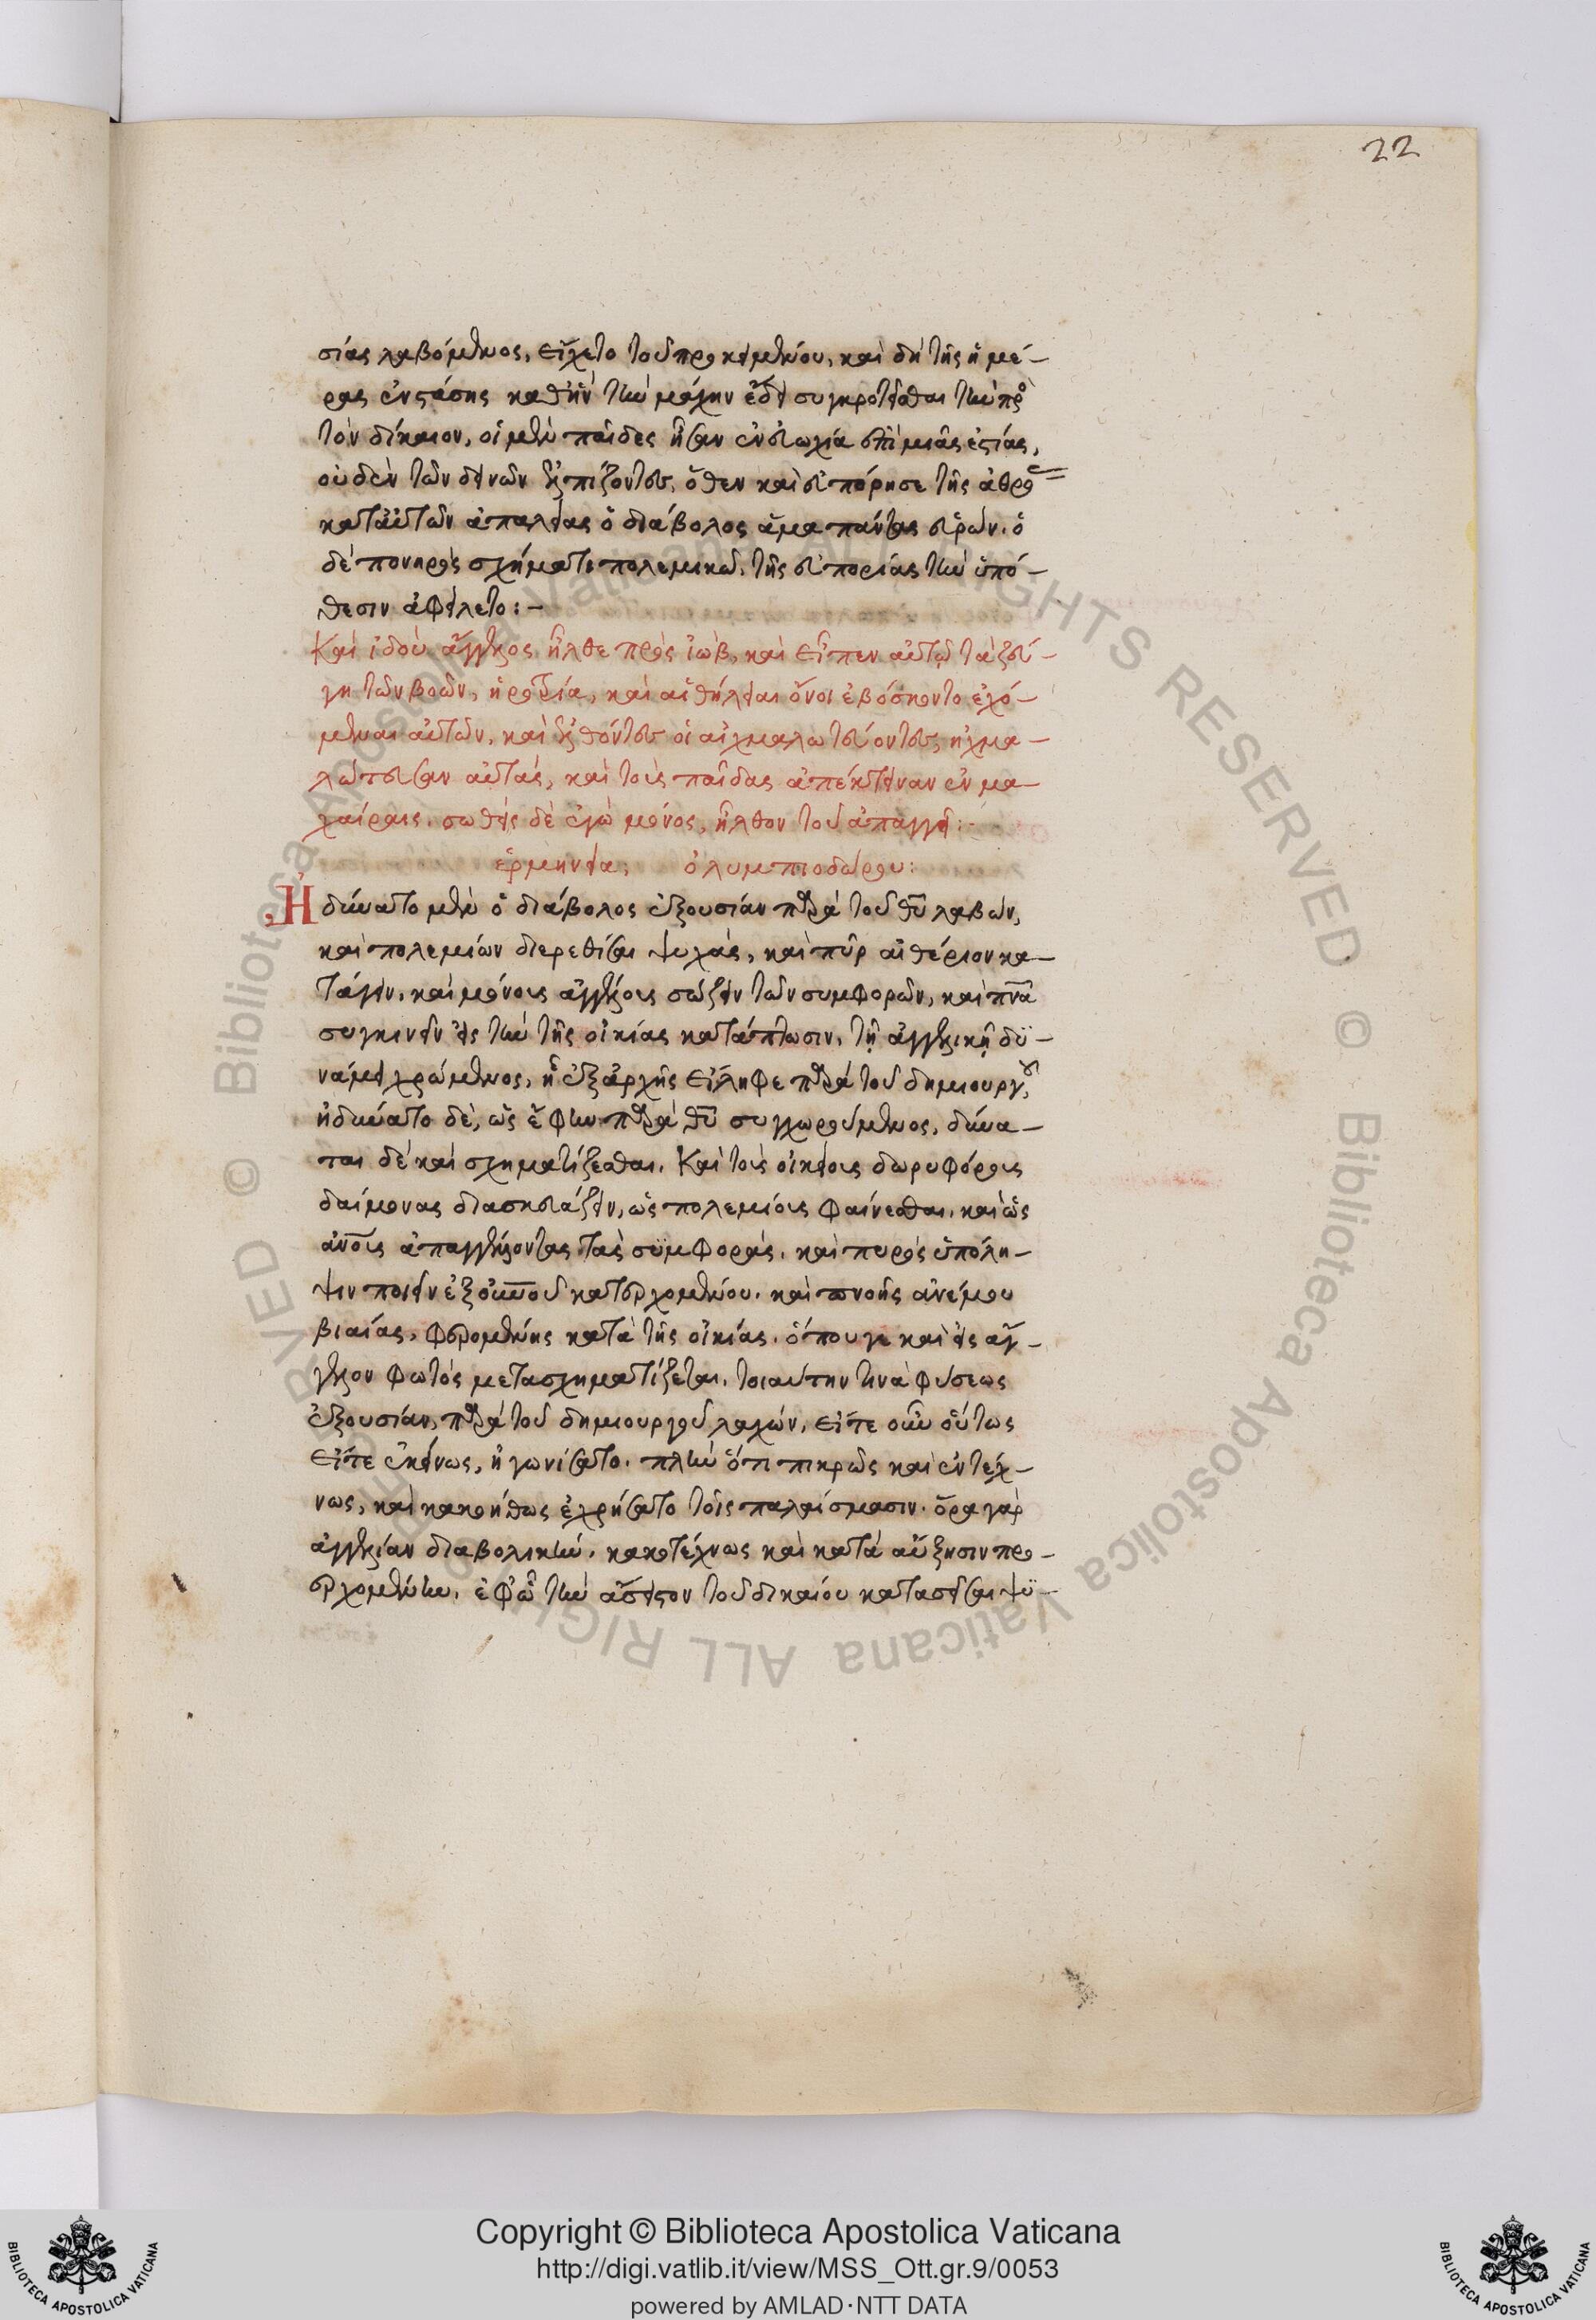 22
σίας λαβόμενος, εἴχετο τοῦ προκειμένου, καὶ δὴ τῆς ἡμέ-
ρας ἐνστάσης καθ' ἣν τὴν μάχην ἔδει συγκροτεῖσθαι τὴν πρὸς
τὸν δίκαιον, οἱ μὲν παῖδες ἦσαν ἐν εὐωχία ἐπὶ μιᾶς ἑστίας,
οὐδὲν τῶν δεινῶν ἐλπίζοντες, ὅθεν καὶ εὐπόρησε τῆς ἀθρό
κατ' αὐτῶν ἀπειλίας ὁ διάβολος ἅμα πάντας εὑρών. ὁ
δὲ πονηρὸς σχήματι πολεμικῶ, τῆς εὐπορίας τὴν ὑπό-
θεσιν ἀφείλετο:-
Καὶ ἰδοὺ ἄγγελος ἦλθε πρὸς ἰὼβ, καὶ εἶπεν αὐτῷ τὰ ζεύ-
γη τῶν βοῶν, ἠροτρία, καὶ αἱ θήλειαι ὄνοι ἐβόσκοντο ἐχό-
μεναι αὐτῶν, καὶ ἐλθόντες οἱ αἰχμαλωτεύοντες, ἠχμα-
λώτευσαν αὐτάς, καὶ τοὺς παῖδας ἀπέκτειναν ἐν μα-
χαίραις. σωθεὶς δὲ ἐγὼ μόνος, ἦλθον τοῦ ἀπαγγεῖ:-
ἑρμηνεία: ὀλυμπιοδώρου:
Ἠδύνατο μὲν ὁ διάβολος ἐξουσίαν παρὰ τοῦ θυ λαβών,
καὶ πολεμίων διερεθίσαι ψυχάς, καὶ πῦρ αἰθέριον κα-
τάγειν, καὶ μόνοις ἀγγέλοις σώζειν τῶν συμφορῶν, καὶ πνα
συγκινεῖν εἰς τὴν τῆς οἰκίας κατάπτωσιν, τῇ ἀγγελικῇ δυ-
νάμει χρώμενος, ἣ ἐξαρχῆς εἴληφε παρὰ τοῦ δημιουργοῦ,
ἠδύνατο δὲ, ὡς ἔφην παρὰ θυ συγχωρούμενος, δύνα-
ται δὲ καὶ σχηματίζεσθαι. Καὶ τοὺς οἰκείους δωρυφόρους
δαίμονας διασκευάζειν, ὡς πολεμίους φαίνεσθαι. καὶ ὡς
ἀνους ἀπαγγέλοντας τὰς συμφοράς. καὶ πυρὸς ὑπόλη-
ψιν ποιεῖν ἐξ οὐνοῦ κατερχομένου. καὶ πνοῆς ἀνέμου
βιαίας, φερομένης κατὰ τῆς οἰκίας. ὅπου γε καὶ εἰς ἄγ-
γελον φωτὸς μετασχηματίζεται. τοιαύτην τινὰ φύσεως
ἐξουσίαν, παρὰ τοῦ δημιουργοῦ λαχών, εἴτε οὖν οὕτως
εἴτε ἐκείνως, ἠγωνίσατο. πλὴν ὅτι πικρῶς καὶ ἐντέχ-
νως, καὶ κακοήθως ἐχρήσατο τοῖς παλαίσμασιν. ὅρα γὰρ
ἀγγελίαν διαβολικήν. κακοτέχνως καὶ κατὰ αὔξησιν προ-
ερχομένην. ἐφ' ᾧ τὴν ἄσειστον τοῦ δικαίου κατασεῖσαι ψυ-
Copyright © Biblioteca Apostolica Vaticana
http://digi.vatlib.it/view/MSS_Ott.gr.9/0053
powered by AMLAD·NTT DATA